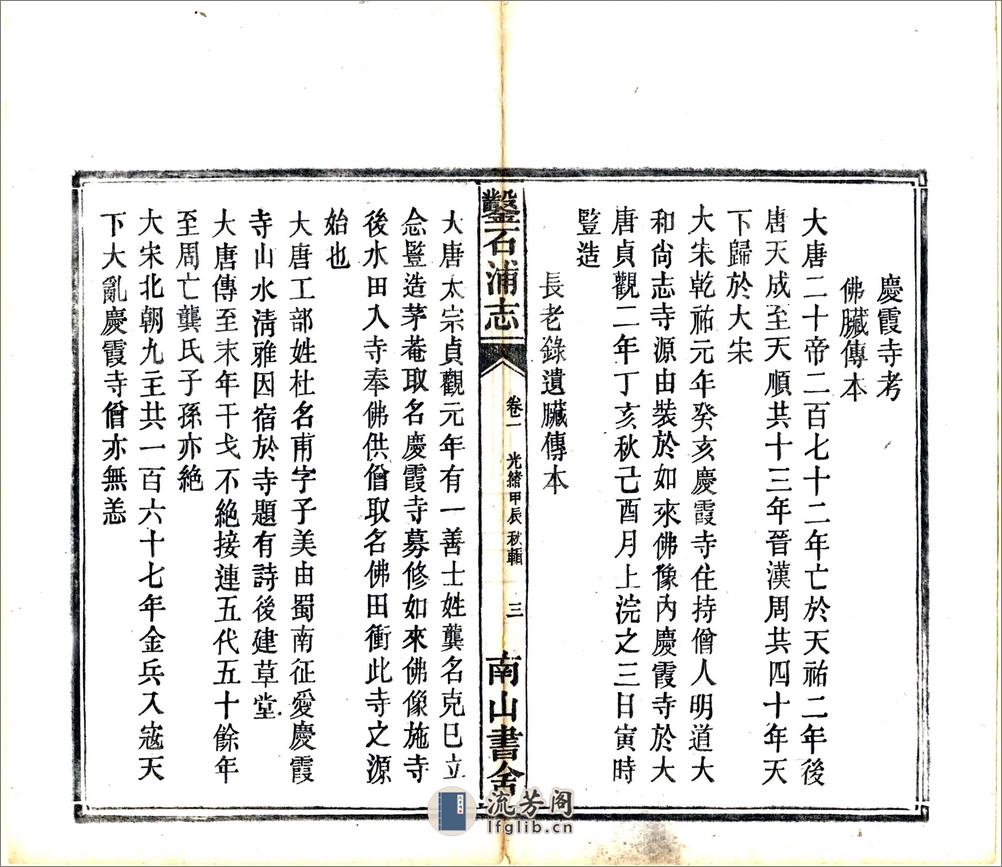 慶霞寺考
佛臟傳本
大唐二十帝二百七十二年亡於天祐二年後
唐天成至天順共十三年晉漢周共四十年天
下歸於大宋
大宋乾祐元年癸亥慶霞寺住持僧人明道大
和尚志寺源由裝於如來佛像內慶霞寺於大
唐貞觀二年丁亥秋己酉月上浣之三日寅時
豎造
長老錄遺臟傳本
鑿石浦志
卷一
光緒甲辰秋輯
三
南山書舍
大唐太宗貞觀元年有一善士姓龔名克巳立
念豎造茅菴取名慶霞寺募修如來佛像施寺
後水田入寺奉佛供僧取名佛田衝此寺之源
始也
大唐工部姓杜名甫字子美由蜀南征愛慶霞
寺山水清雅因宿於寺題有詩後建草堂
大唐傳至末年干戈不絕接連五代五十餘年
至周亡龔氏子孫亦絕
大宋北朝九主共一百六十七年金兵入寇天
下大亂慶霞寺僧亦無恙
流芳阁
lfglib.cn